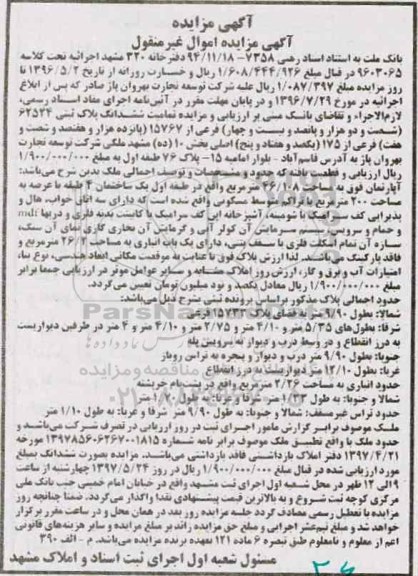 آگهی مزایده
آگهی مزایده اموال غیرمنقول
بانک ملت به استناد اسناد رهنی ۷۳۵۸- ۹۴/۱۱/۱۸ دفترخانه ۳۲۰ مشهد اجرائیه تحت کلاسه
۹۶۰۳۰۶۵ در قبال مبلغ ۱/۶۰۸/۴۴۴/۹۲۶ ریال و خسارت روزانه از تاریخ ۱۳۹۶/۵/۲ تا
روز مزایده مبلغ ۱/۰۸۷/۳۹۷ ریال علیه شرکت توسعه تجارت بهروان پاژ صادر که پس از ابلاغ
اجرائیه در مورخ ۱۳۹۶/۷/۲۹ و در پایان مهلت مقرر در آئین‌نامه اجرای مفاد اسناد رسمی،
لازم‌الاجراء و تقاضای بانک مبنی بر ارزیابی و مزایده تمامیت ششدانگ پلاک ثبتی ۶۲۵۲۴
(شصت و دو هزار و پانصد و بیست و چهار) فرعی از ۱۵۷۶۷ (پانزده هزار و هفتصد و شصت و
هفت) فرعی از ۱۷۵ (یکصد و هفتاد و پنج) اصلی بخش ۱۰ (ده) مشهد ملکی شرکت توسعه تجارت
بهروان پاژ به آدرس قاسم‌آباد - بلوار امامیه ۱۵- پلاک ۷۶ طبقه اول به مبلغ ۱/۹۰۰/۰۰۰/۰۰۰
ریال ارزیابی و قطعیت یافته و حدود و مشخصات و توصیف اجمالی ملک بدین شرح می‌باشد:
آپارتمان فوق به مساحت ۳۶/۱۸ مترمربع واقع در طبقه اول یک ساختمان ۴ طبقه با عرصه به
مساحت ۲۰۰ مترمربع با تراکم متوسط مسکونی واقع شده است که دارای سه اتاق خواب، هال و
پذیرایی کف سرامیک با شومینه، آشپزخانه اپن کف سرامیک با کابینت بدنه فلزی و دربها mdf
و حمام و سرویس، سیستم سرمایش آن کولر آبی و گرمایش آن بخاری گازی نمای آن سنگ،
سازه آن تمام اسکلت فلزی با سقف بتنی، دارای یک باب انباری به مساحت ۲/۲۶ مترمربع و
فاقد پارکینگ می‌باشد. لذا ارزش پلاک فوق با عنایت به موقعیت مکانی ابعاد هندسی، نوع بنا،
امتیازات آب و برق و گاز، ارزش روز املاک مشابه و سایر عوامل موثر در ارزیابی جمعا برابر
۱/۹۰۰/۰۰۰/۰۰۰ ریال معادل یکصد و نود میلیون تومان تعیین می‌گردد.
حدود اجمالی پلاک مذکور براساس پرونده ثبتی بشرح ذیل می‌باشد:
شمالا: بطول ۹/۹۰ متر به فضای پلاک ۱۵۷۳۳ فرعی
شرقا: بطول‌های ۵/۳۵ متر و ۴/۱۰ متر و ۲/۷۵ متر و ۴/۱۰ متر و ۴ متر در طرفین دیواریست
به درز انقطاع و در وسط درب و دیوار به سرویس پله
جنوبا: بطول ۹/۹۰ متر درب و دیوار و پنجره به تراس روباز
غربا: بطول ۱۲/۱۰ متر دیواریست به درز انقطاع
حدود انباری به مساحت ۲/۲۶ مترمربع واقع در پشت‌بام خرپشته
شمالا و جنوبا: به طول ۱/۳۳ متر شرقا و غربا: به طول ۱/۷۰ متر
حدود تراس غیرمسقف: شمالا و جنوبا: به طول ۹/۹۰ متر شرقا و غربا: به طول ۱/۱۰ متر
ملک موصوف برابر گزارش مامور اجرای ثبت در روز ارزیابی در تصرف شرکت می‌باشد و
حدود ملک با واقع تطبیق ملک موصوف برابر نامه شماره ۱۳۹۷۸۵۶۰۶۲۶۷۰۰۱۸۱۵ مورخه
۱۳۹۷/۴/۲۱ دفتر املاک بازداشتی فاقد بازداشتی می‌باشد. مزایده بصورت ششدانگ بمبلغ
مورد ارزیابی شده در قبال مبلغ ۱/۹۰۰/۰۰۰/۰۰۰ ریال در روز ۱۳۹۷/۵/۲۴ چهارشنبه از ساعت
۹ الی ۱۲ ظهر در محل شعبه اول اجرای ثبت مشهد واقع در خیابان امام خمینی جنب بانک ملی
مرکزی کوچه ثبت شروع و به بالاترین قیمت پیشنهادی نقدا واگذار می‌گردد. ضمنا چنانچه روز
مزایده با تعطیل رسمی مصادف گردد جلسه مزایده روز بعد در همان محل و در ساعت مقرر برگزار
خواهد شد و مبلغ نیم‌عشر اجرایی و مبلغ حق مزایده زائد بر مبلغ مزایده و سایر هزینه‌های قانونی
اعم از معلوم و نامعلوم طبق تبصره ۶ ماده ۱۲۱ بعهده برنده مزایده می‌باشد. م - الف ۳۹۰
مسئول شعبه اول اجرای ثبت اسناد و املاک مشهد